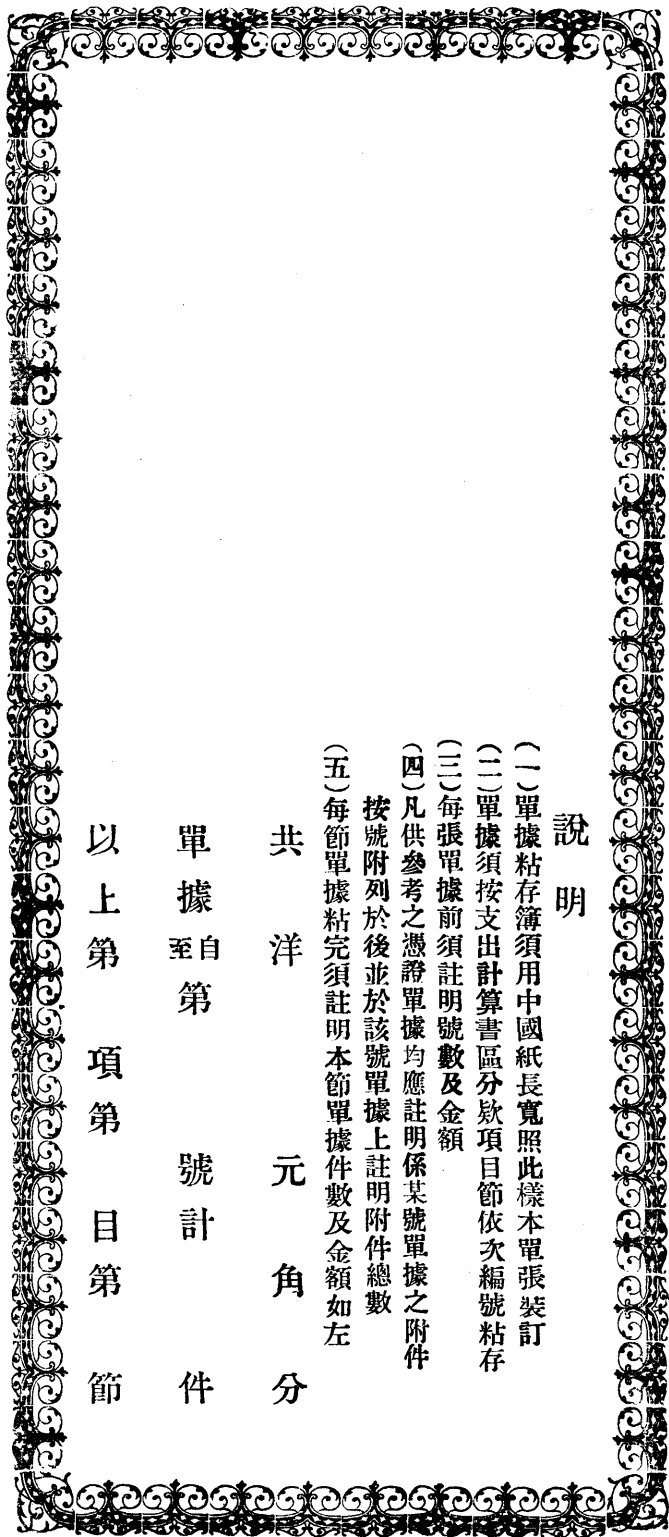 說明
(一)單據粘存簿須用中國紙長寬照此樣本單張裝訂
(二)單據須按支出計算書區分欵項目節依次編號粘存
(三)每張單據前須註明號數及金額
(四)凡供參考之憑證單據均應註明係某號單據之附件
按號附列於後並於該號單據上註明附件總數
(五)每節單據粘完須註明本節單據件數及金額如左
共洋 元角分
單據自至第 號計 件
以上第 項第 目第 節